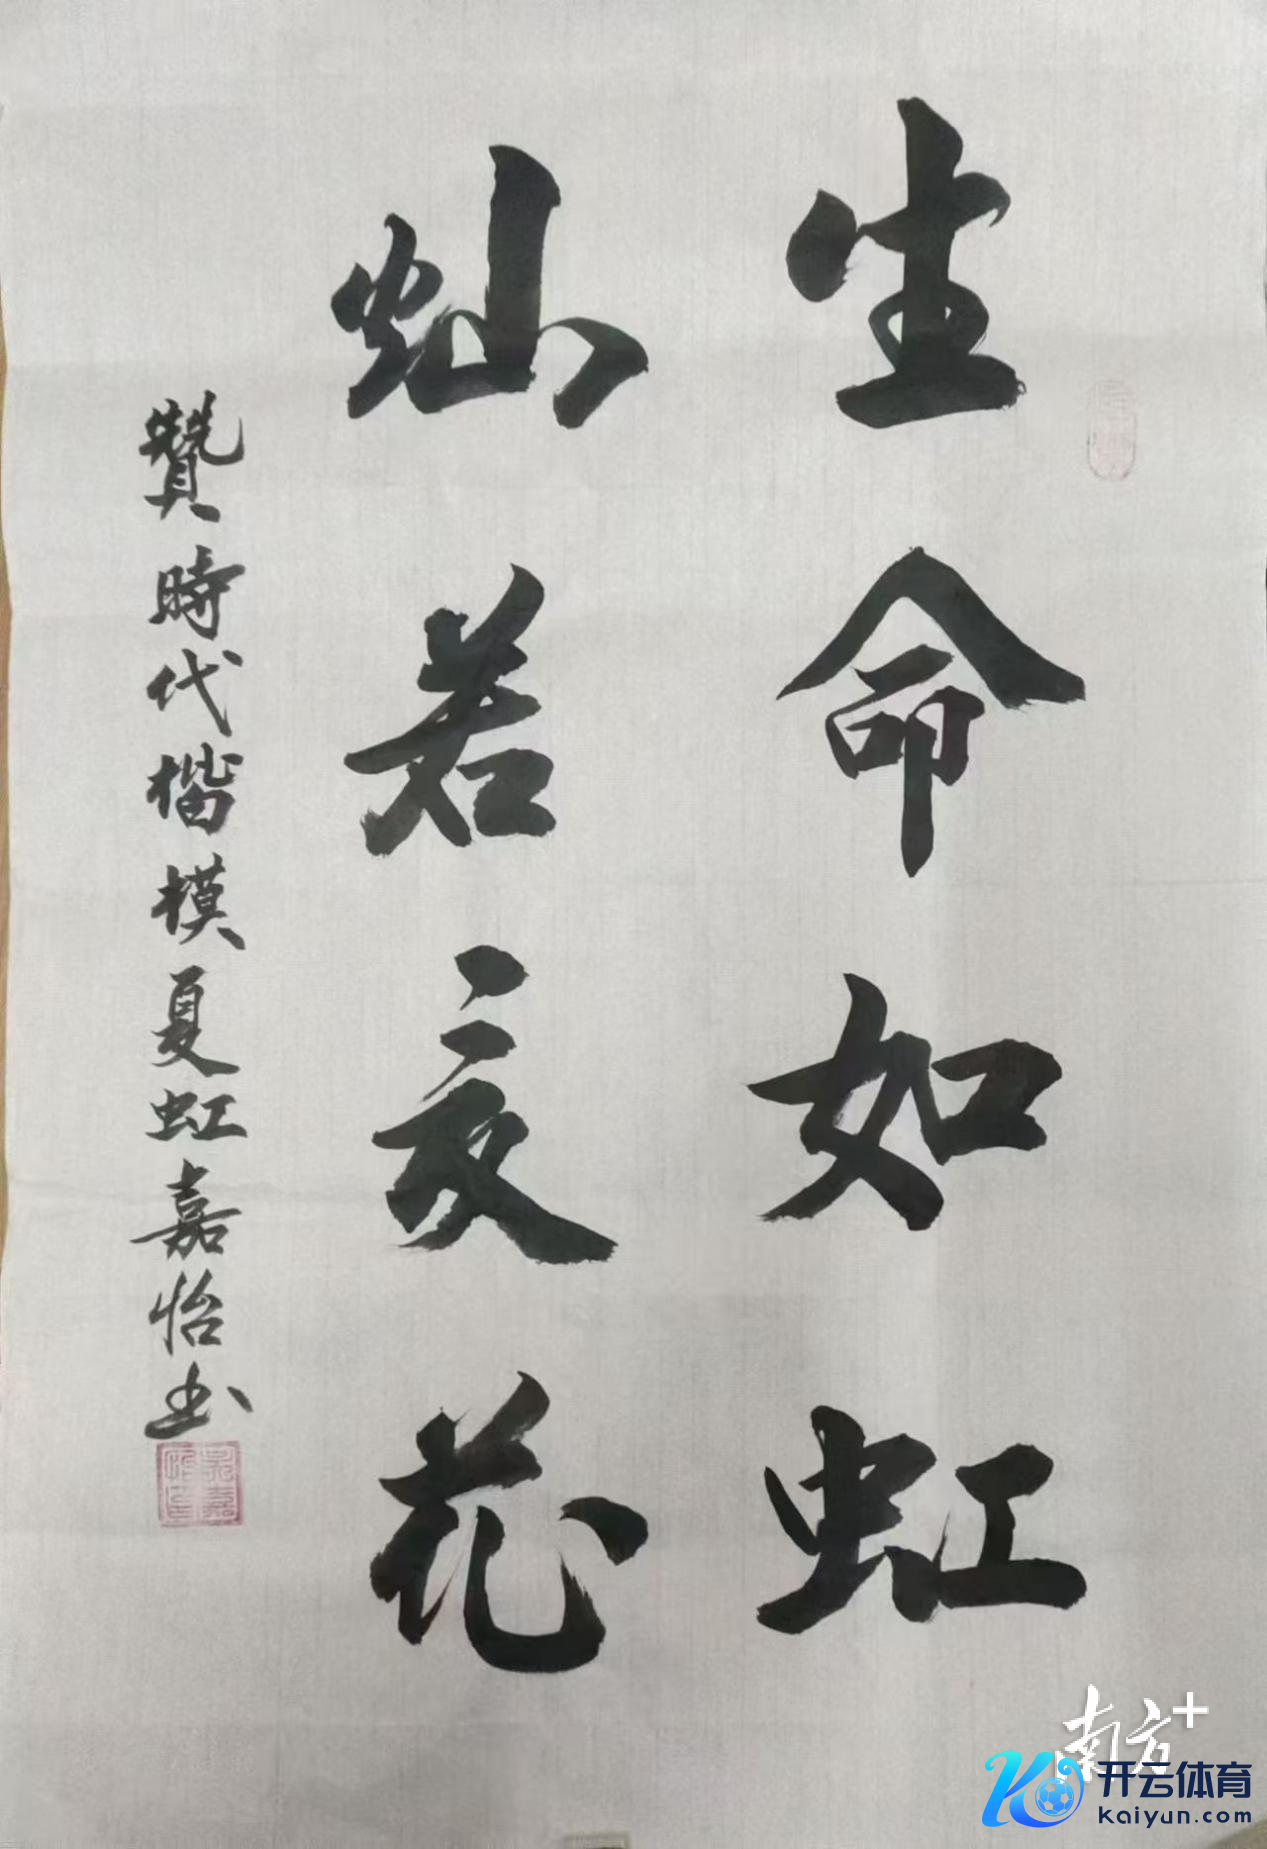 生命如虹
灿若夏花
贊時代楷模夏虹嘉怡书
南方+
开云体育
kaiyun.com